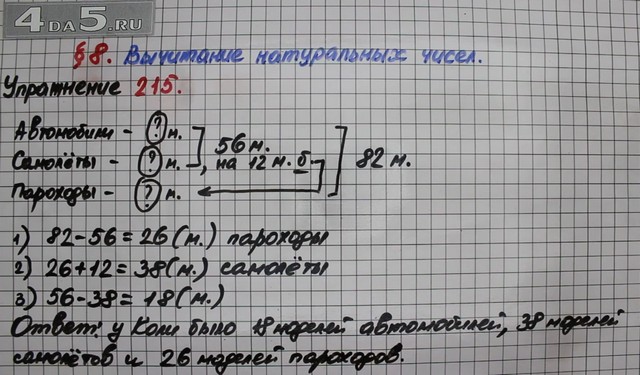 4DA5.RU
§ 8. Вычитание натуральных чисел.
Упражнение 215.
Автомобили - ? м.
56 м.
Самолёты - ? м. , на 12 м. б
82 м.
Пароходы - ? м.
1) 82-56=26(м.) пароходы
2) 26+12=38(м.) самолёты
3) 56-38=18(м.)
Ответ: у Коли было 18 моделей автомобилей, 38 моделей
самолётов и 26 моделей пароходов.